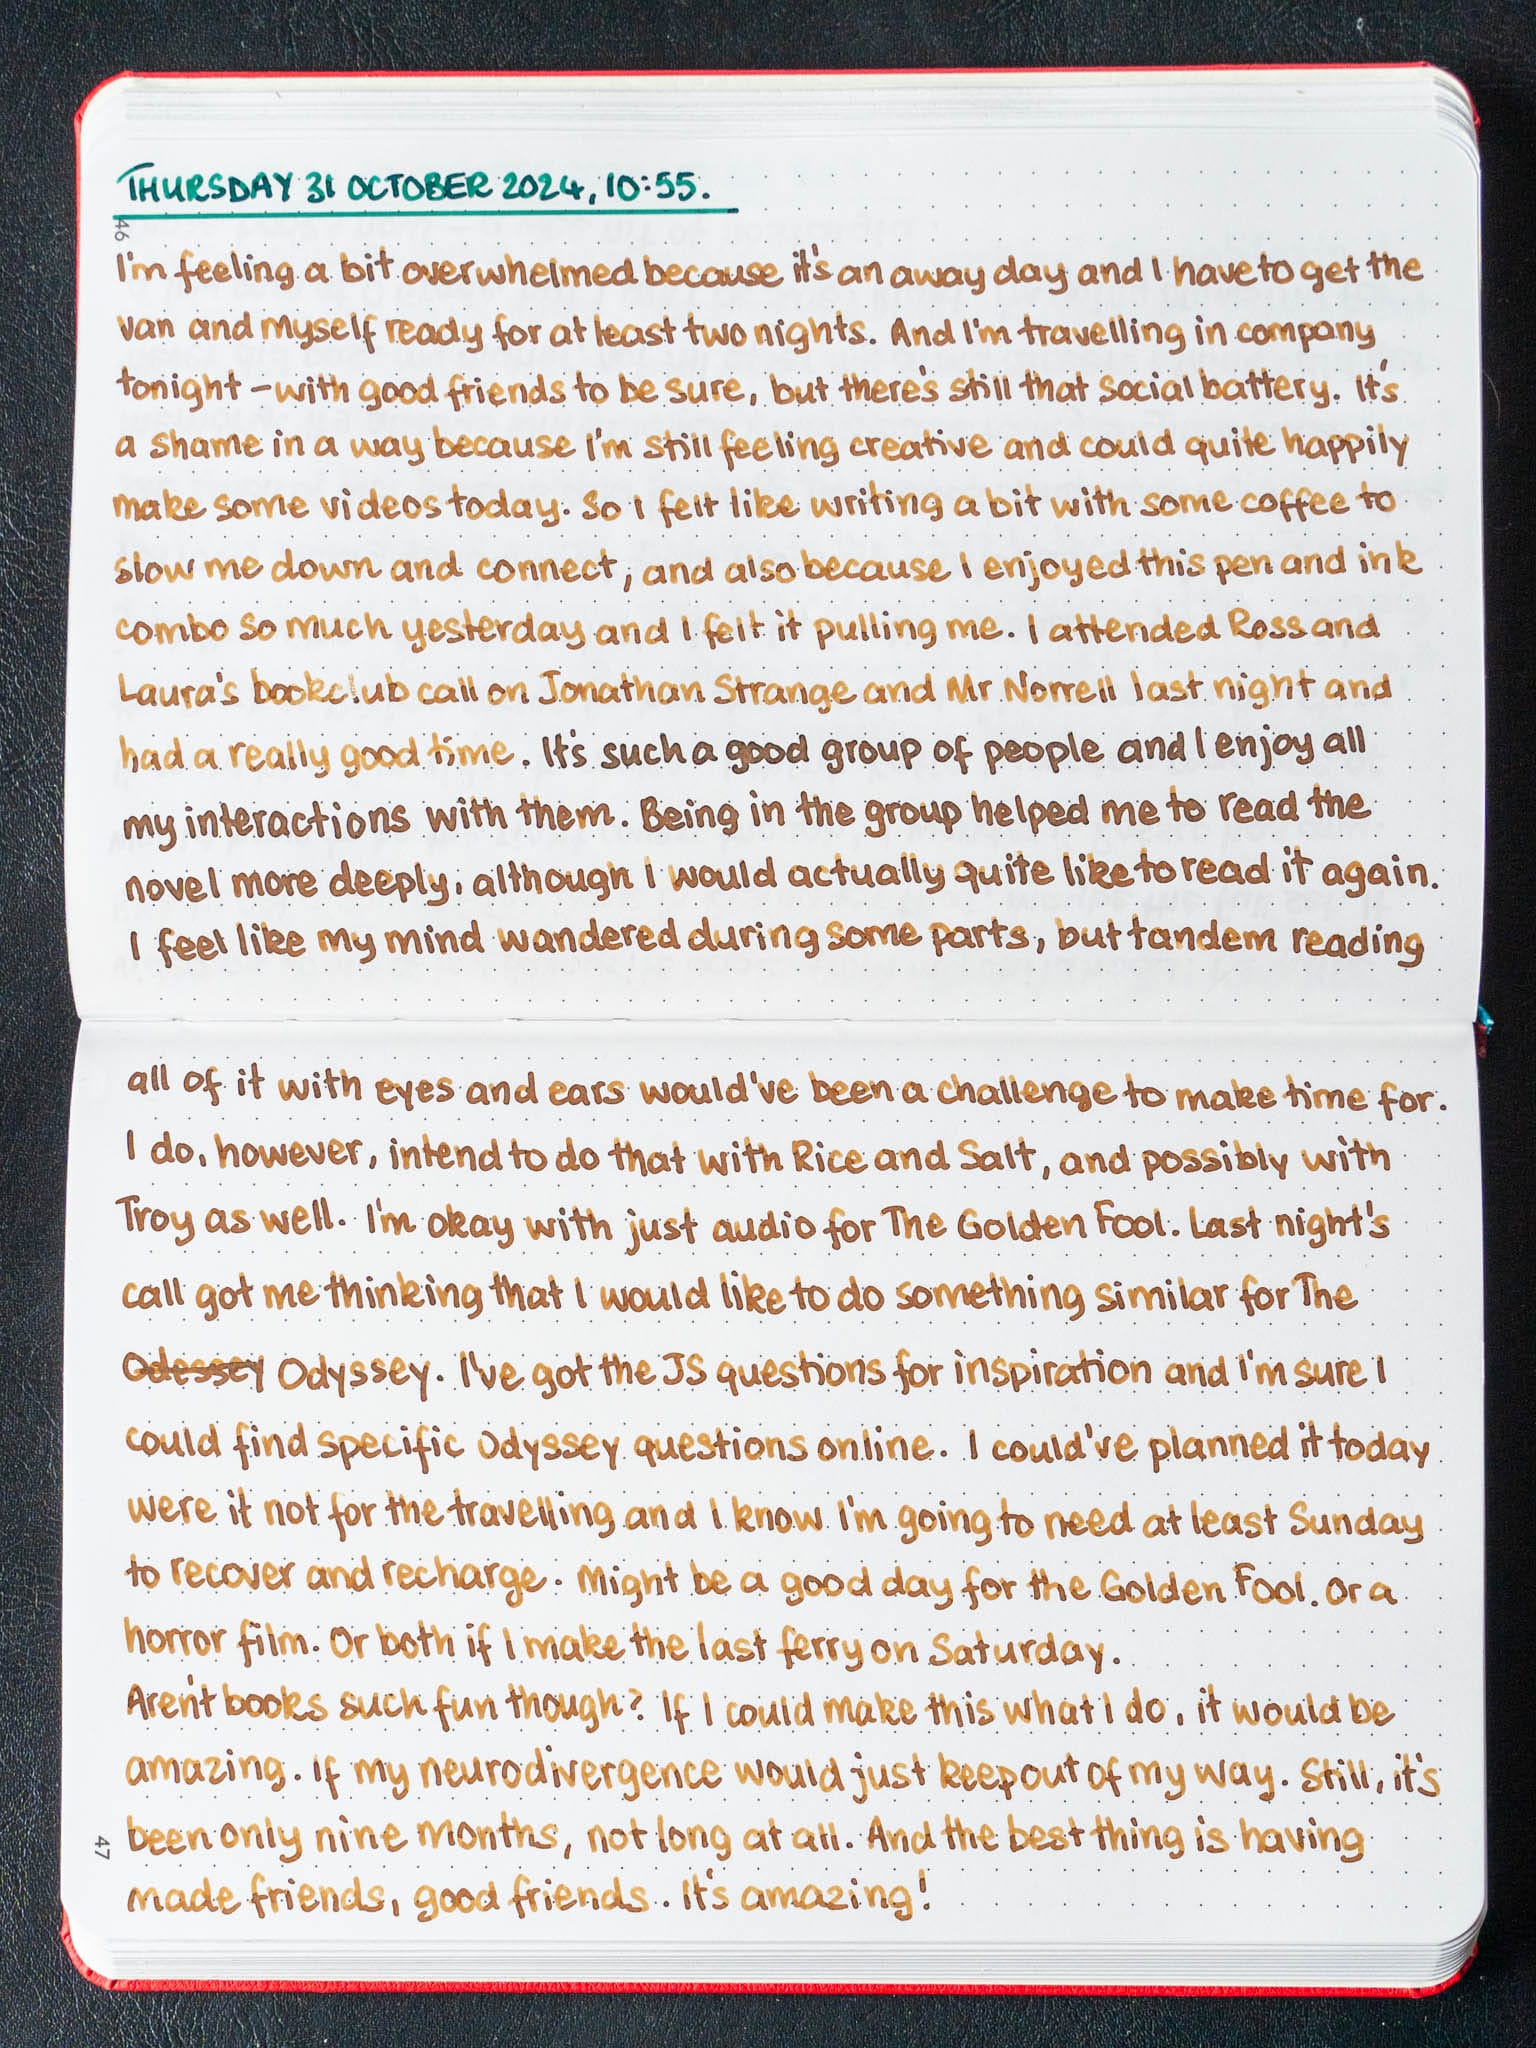 THURSDAY 31 OCTOBER 2024, 10:55.
46
I'm feeling a bit overwhelmed because it's an away day and I have to get the
van and myself ready for at least two nights. And I'm travelling in company
tonight – with good friends to be sure, but there's still that social battery. It's
a shame in a way because I'm still feeling creative and could quite happily
make some videos today. So I felt like writing a bit with some coffee to
slow me down and connect, and also because I enjoyed this pen and ink
combo so much yesterday and I felt it pulling me. I attended Ross and
Laura's bookclub call on Jonathan Strange and Mr Norrell last night and
had a really good time. It's such a good group of people and I enjoy all
my interactions with them. Being in the group helped me to read the
novel more deeply, although I would actually quite like to read it again.
I feel like my mind wandered during some parts, but tandem reading
all of it with eyes and ears would've been a challenge to make time for.
I do, however, intend to do that with Rice and Salt, and possibly with
Troy as well. I'm okay with just audio for The Golden Fool. Last night's
call got me thinking that I would like to do something similar for The
Odessey Odyssey. I've got the JS questions for inspiration and I'm sure I
could find specific Odyssey questions online. I could've planned it today
were it not for the travelling and I know I'm going to need at least Sunday
to recover and recharge. Might be a good day for the Golden Fool. Or a
horror film. Or both if I make the last ferry on Saturday.
Aren't books such fun though? If I could make this what I do, it would be
amazing. If my neurodivergence would just keep out of my way. Still, it's
been only nine months, not long at all. And the best thing is having
made friends, good friends. It's amazing!
47